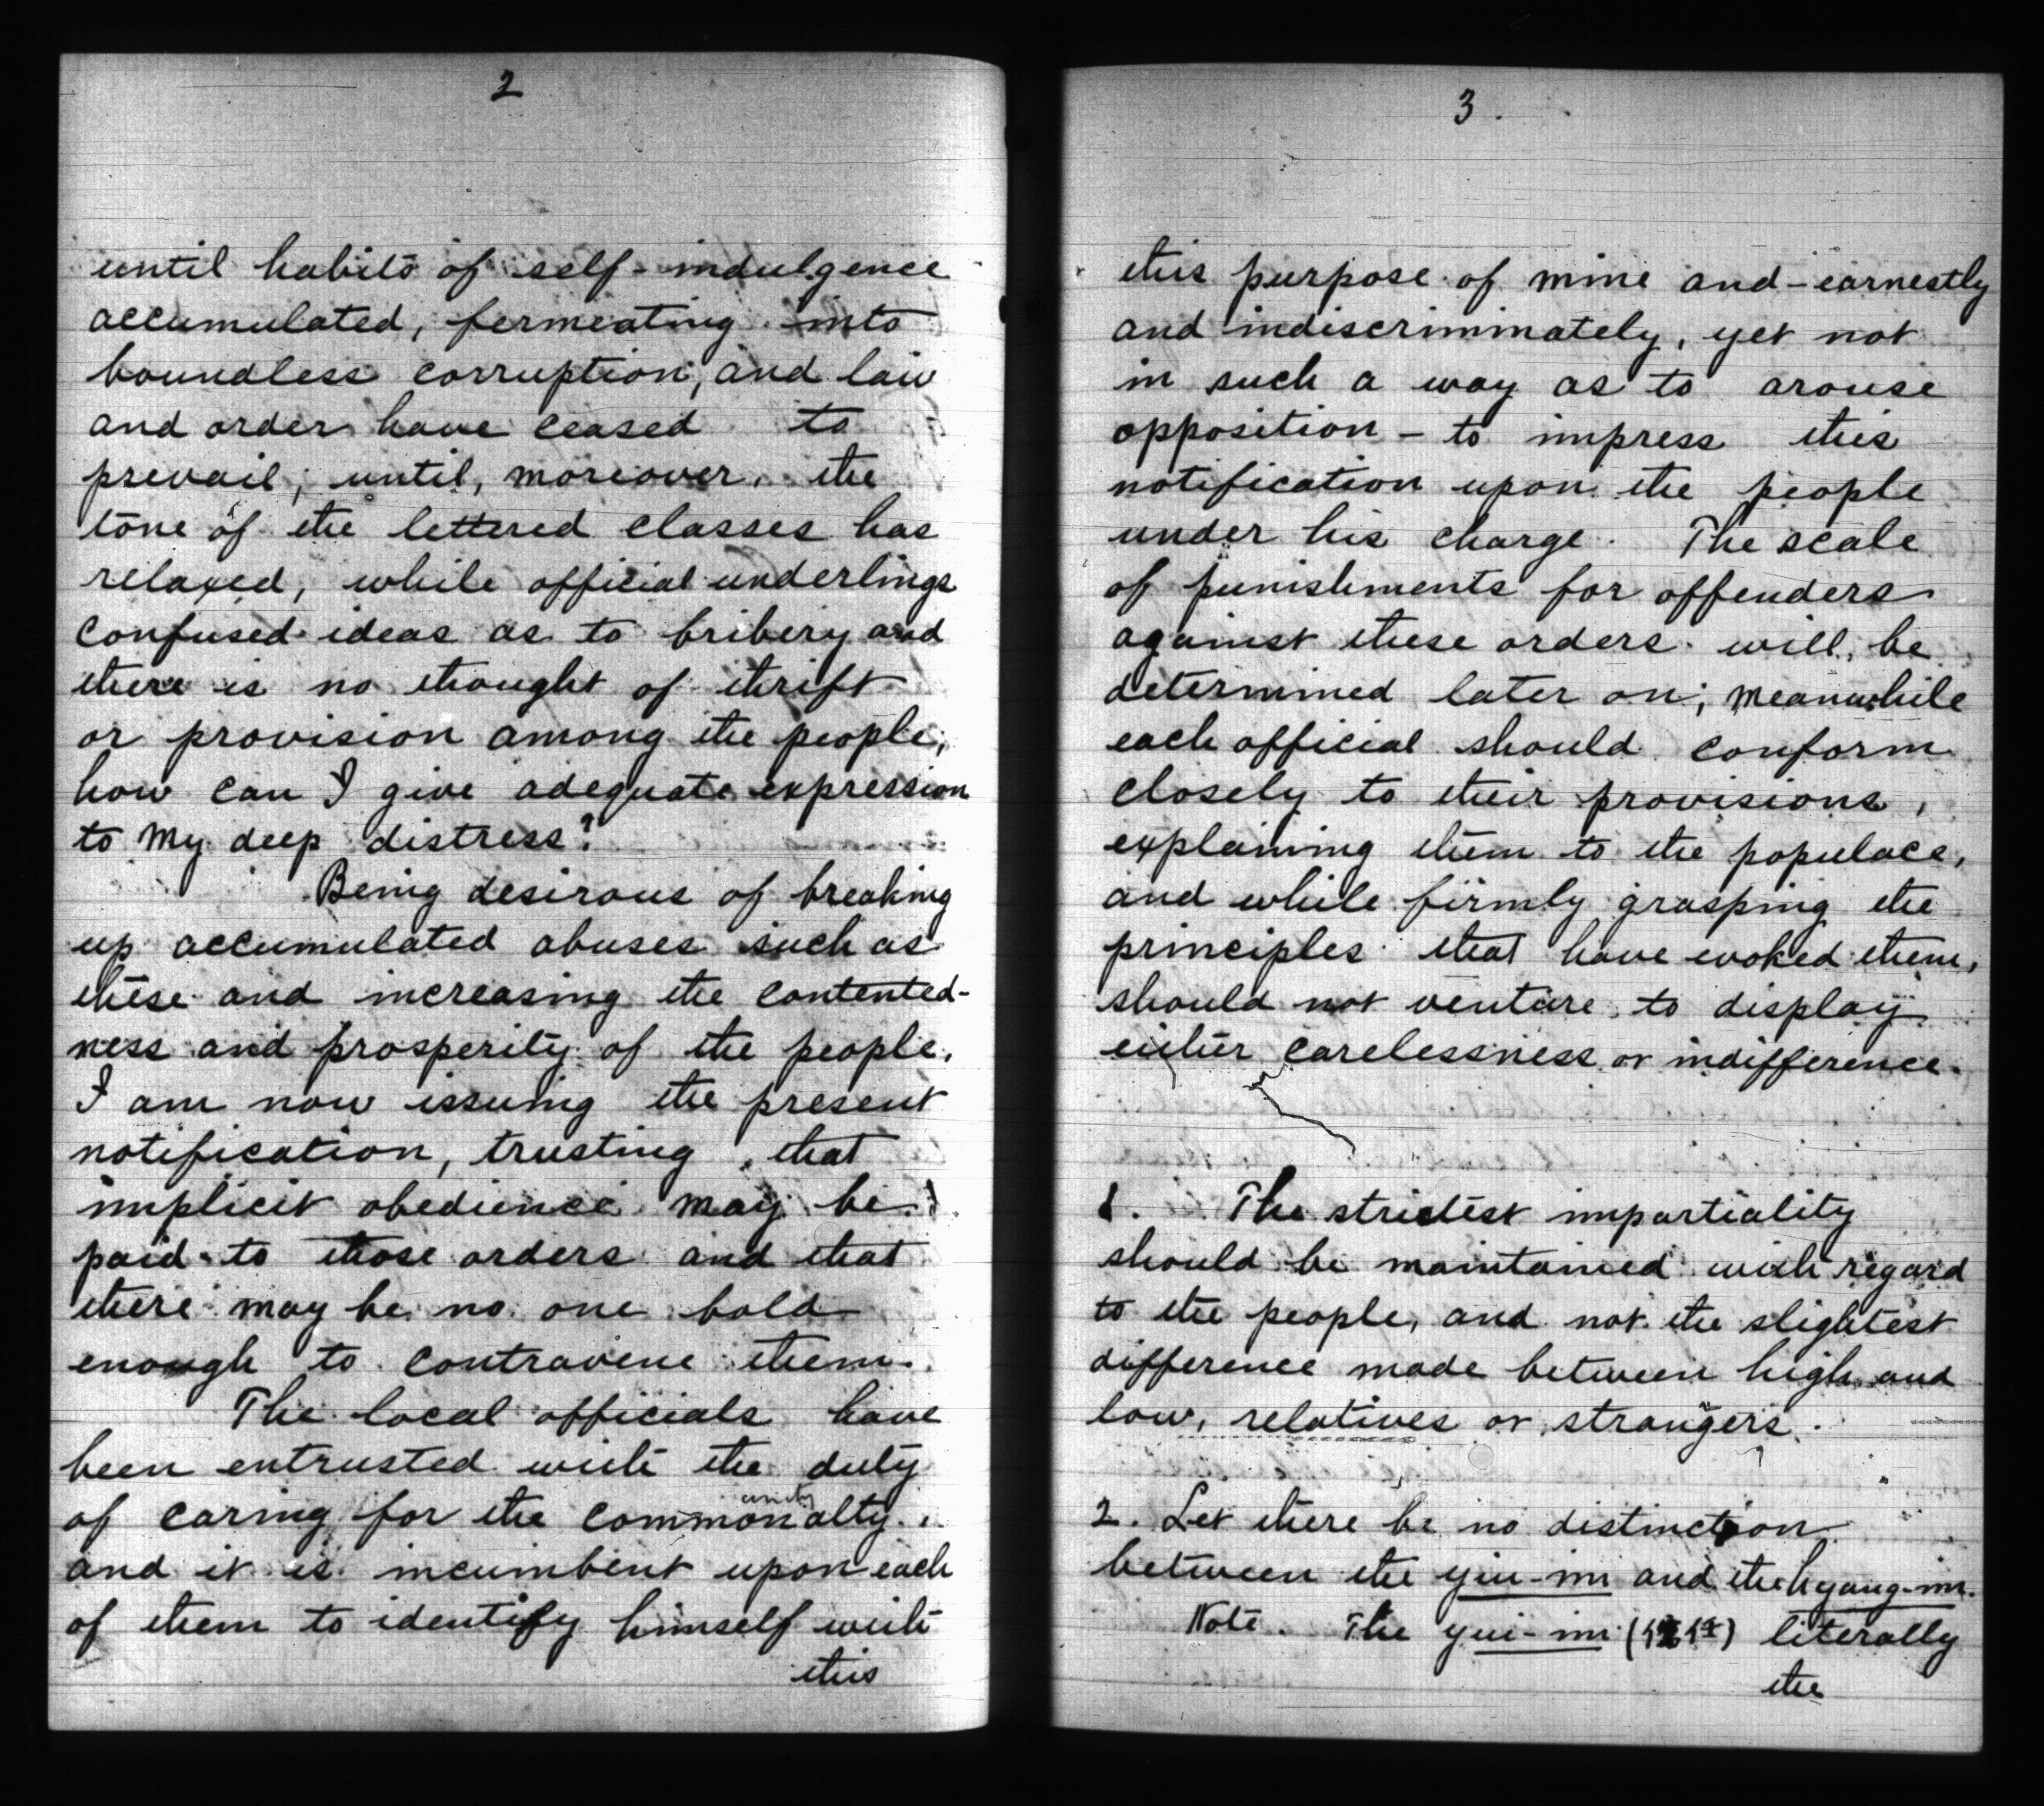 2
until habits of self-indulgence
accumulated, fermenting into
boundless corruption, and law
and order have ceased to
prevail; until, moreover, the
tone of the lettered classes has
relaxed, while official underlings
confused ideas as to bribery and
there is no thought of thrift
or provision among the people;
how can I give adequate expression
to my deep distress?
Being desirous of breaking
up accumulated abuses such as
these and increasing the contented-
ness and prosperity of the people,
I am now issuing the present
notification, trusting that
implicit obedience may be
paid to those orders and that
there may be no one bold
enough to contravene them.
The local officials have
been entrusted with the duty
of caring for the commonalty.
and it is incumbent upon each
of them to identify himself with
this
3.
this purpose of mine and - earnestly
and indiscriminately, yet not
in such a way as to arouse
opposition - to impress this
notification upon the people
under his charge. The scale
of punishments for offenders
against these orders will be
determined later on; meanwhile
each official should conform
closely to their provisions,
explaining them to the populace,
and while firmly grasping the
principles that have evoked them,
should not venture to display
either carelessness or indifference.
1. The strictest impartiality
should be maintained with regard
to the people, and not the slightest
difference made between high and
low, relatives or strangers.
2. Let there be no distinction
between the yiu-in and the hyang-in.
Note. The yui-in ( ) literally
the